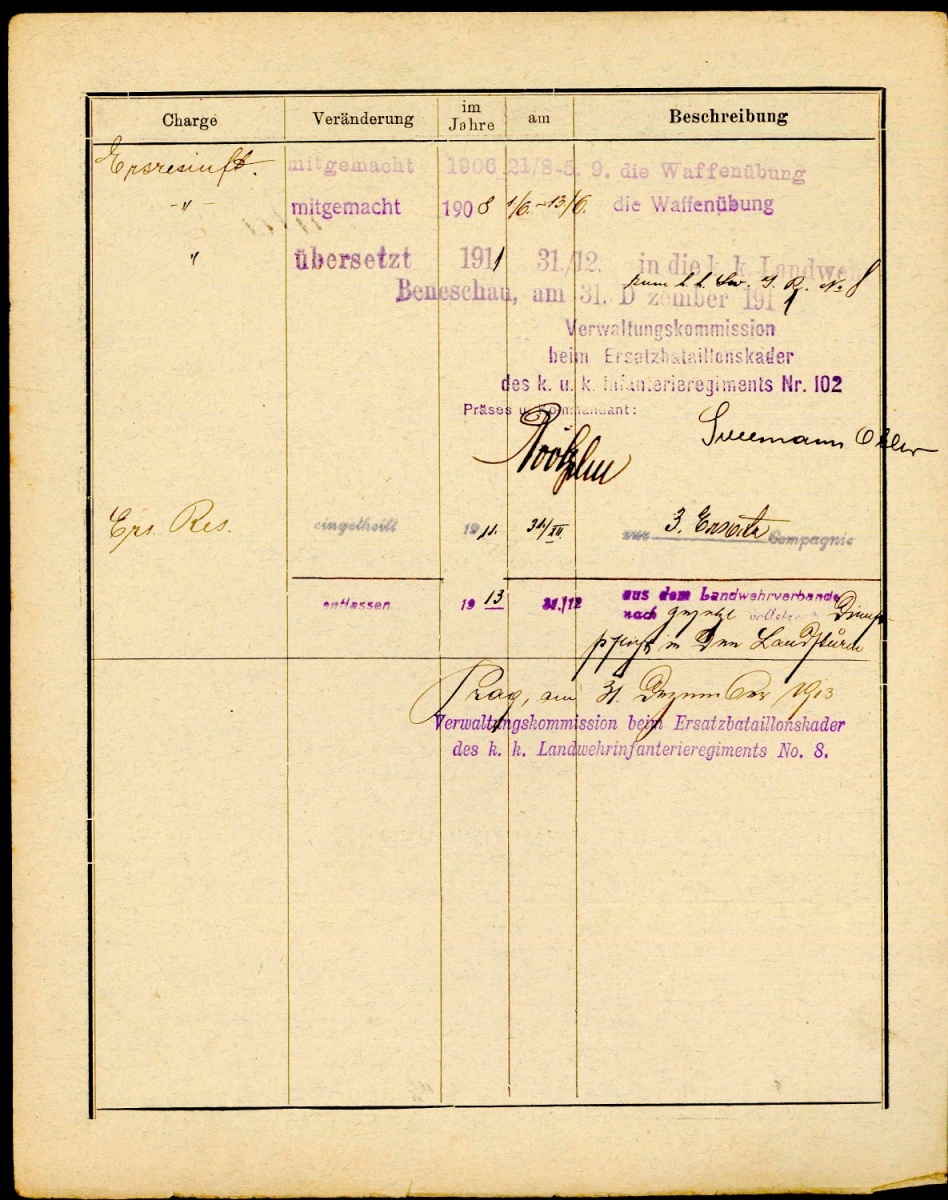 Charge Veränderung im Jahre am Beschreibung
Ersresinft. mitgemacht 1906 21/8-5. 9. die Waffenübung
-"- mitgemacht 1908 1/6.-13/6. die Waffenübung
" übersetzt 1911 31./12. in die k. k. Landwe
zum k. k. Lw. I. R. No 8
Beneschau, am 31. D zember 1911
Verwaltungskommission
beim Ersatzbataillonskader
des k. u. k. Infanterieregiments Nr. 102
Präses u. Kommandant:
Ers. Res. eingetheilt 1911. 31/XII zur 3. Ersatz Compagnie
entlassen 1913 31./12 aus dem Landwehrverbande
nach gesetzl vollstr Dienst-
pflicht in den Landsturm
Prag, am 31. Dezember 1913
Verwaltungskommission beim Ersatzbataillonskader
des k. k. Landwehrinfanterieregiments No. 8.